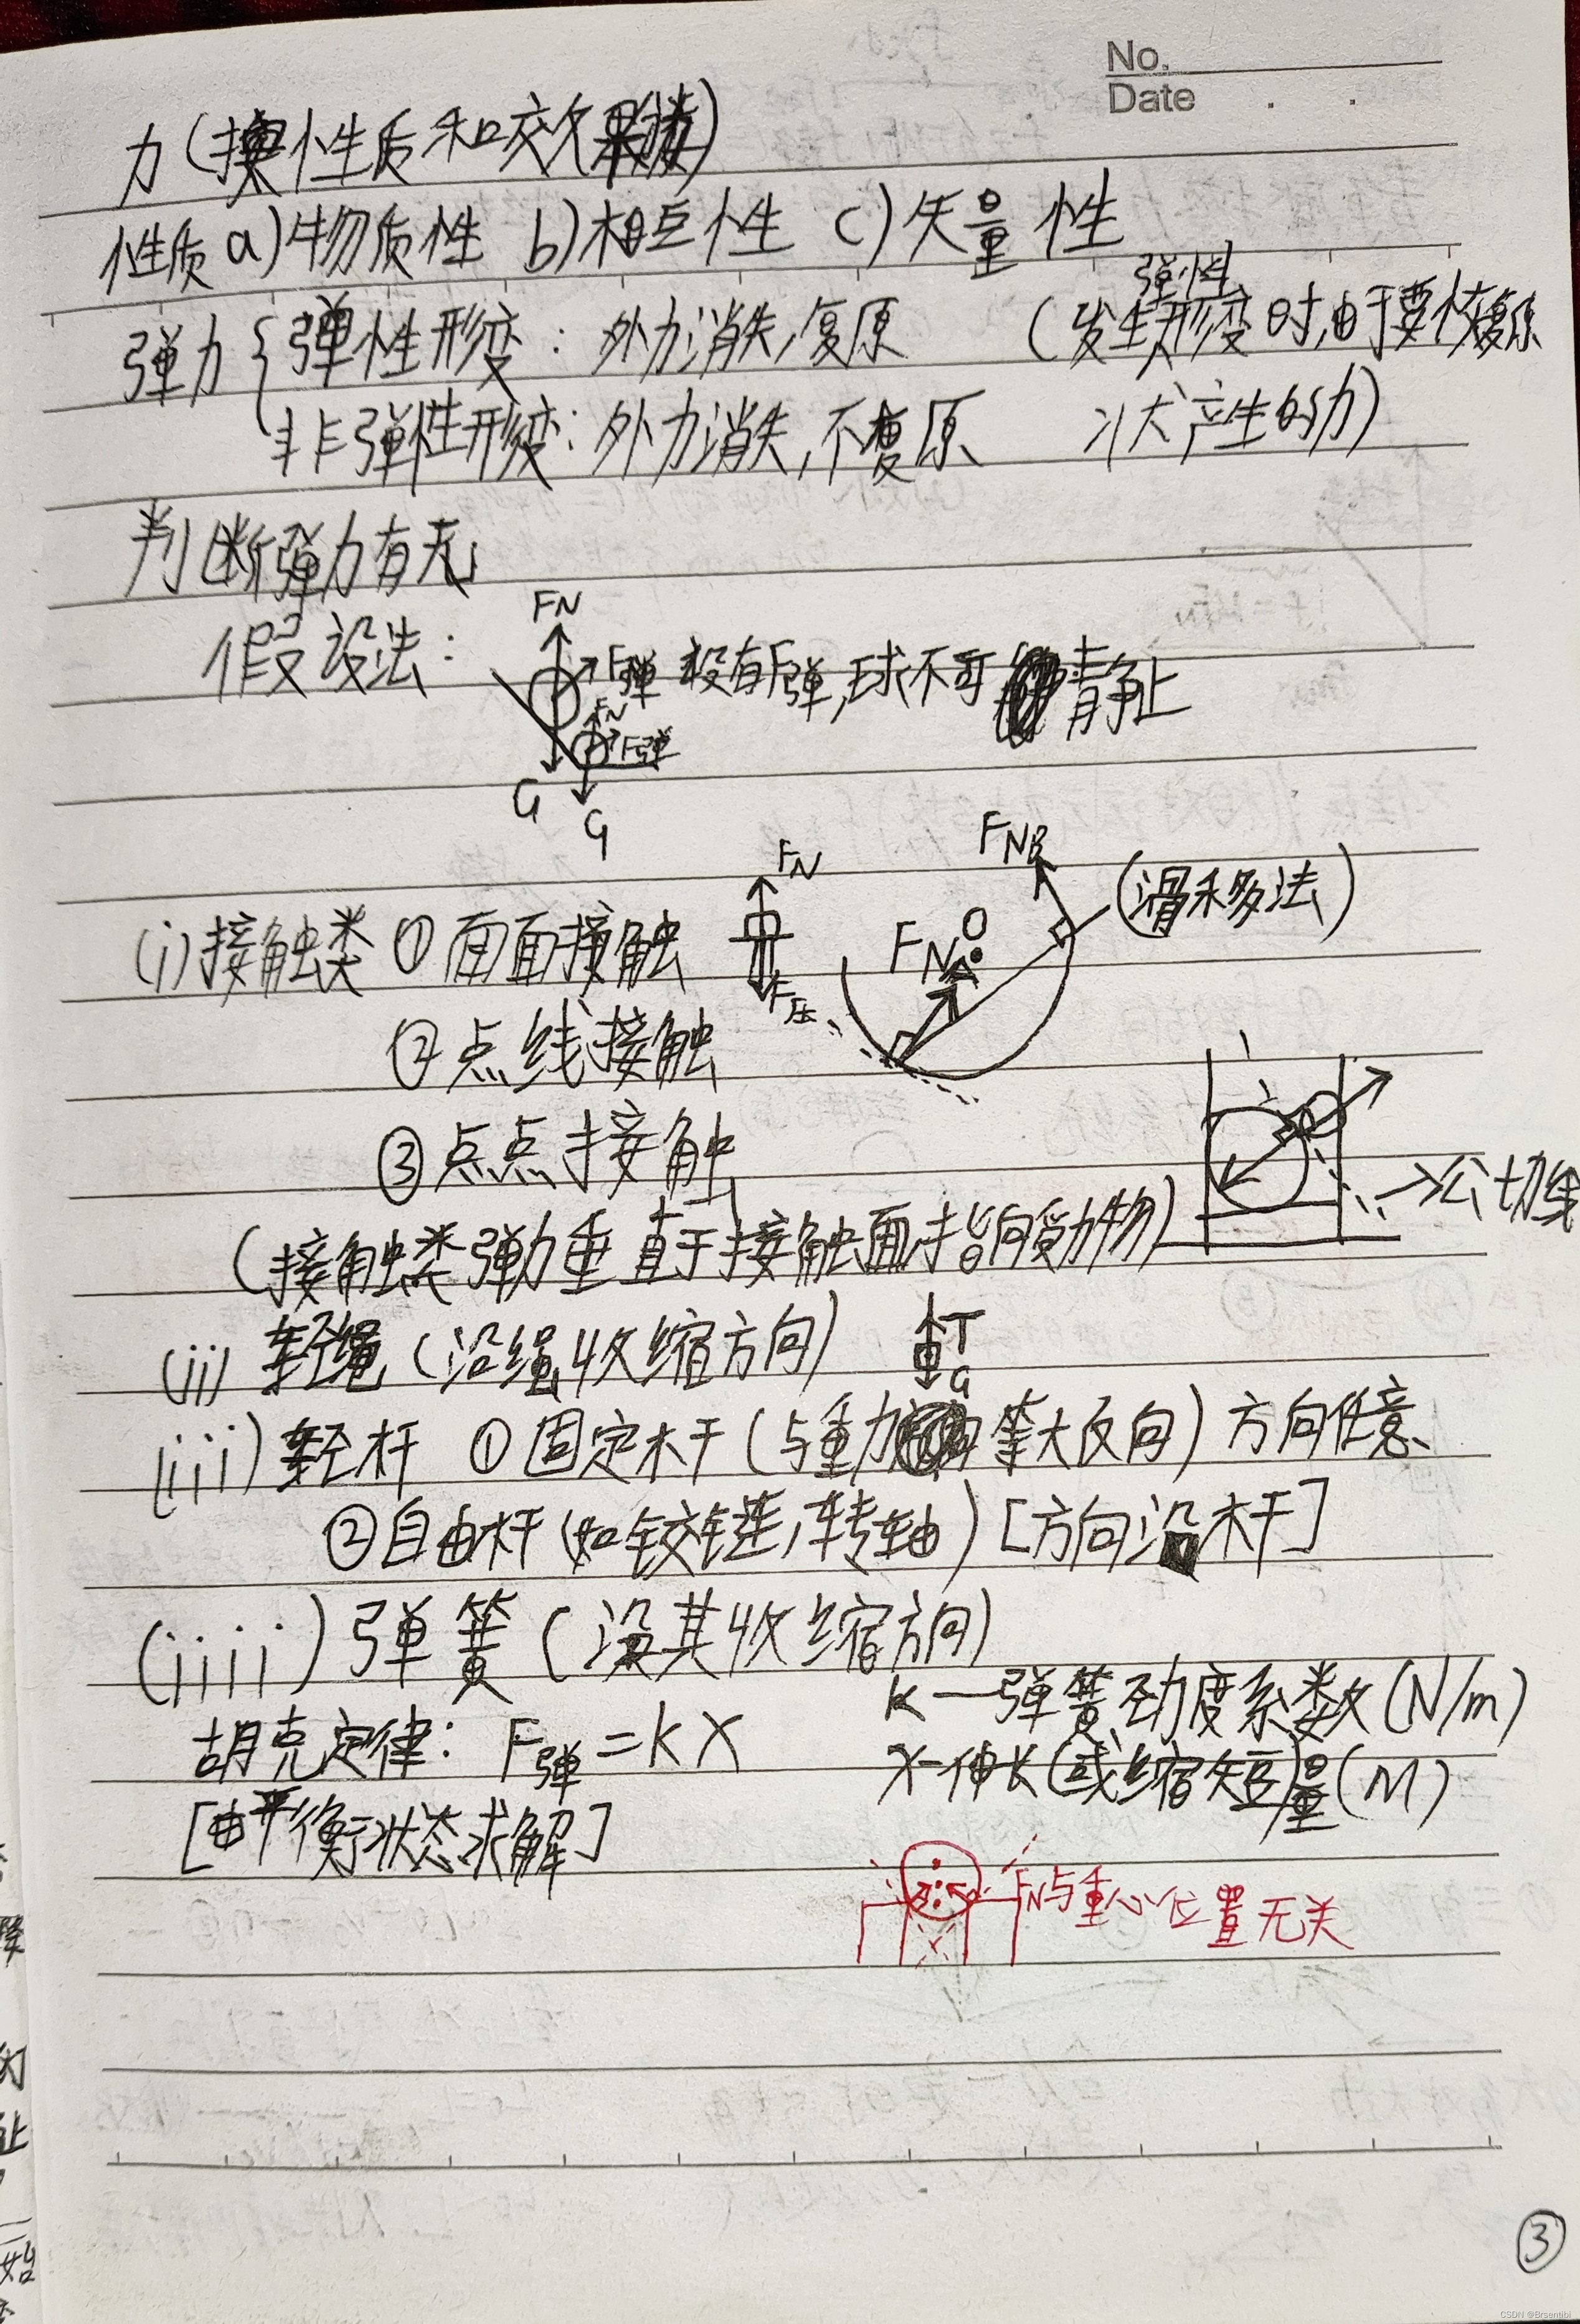 No.
Date . .
力(按性质和效果分类)
性质 a)物质性 b)相互性 c)矢量性
弹力{弹性形变:外力消失,复原 (发生弹性形变时,由于要恢复原
非弹性形变:外力消失,不复原 状产生的力)
判断弹力有无
假设法: FN F弹 没有F弹,球不可静止
FN F弹
G
G
(i)接触类 ①面面接触 FN F压 FNA O FNB (滑移法)
②点线接触
③点点接触 →公切线
(接触类弹力垂直于接触面指向受力物)
(ii) 轻绳(沿绳收缩方向) T G
(iii)轻杆 ①固定杆(与重力等大反向)方向任意
②自由杆(如铰链,转轴)[方向沿杆]
(iiii)弹簧(沿其收缩方向)
K—弹簧劲度系数(N/m)
胡克定律: F弹=KX
X-伸长(或缩短)量(M)
[由平衡状态求解]
FN与重心位置无关
③
CSDN @Brsentibi